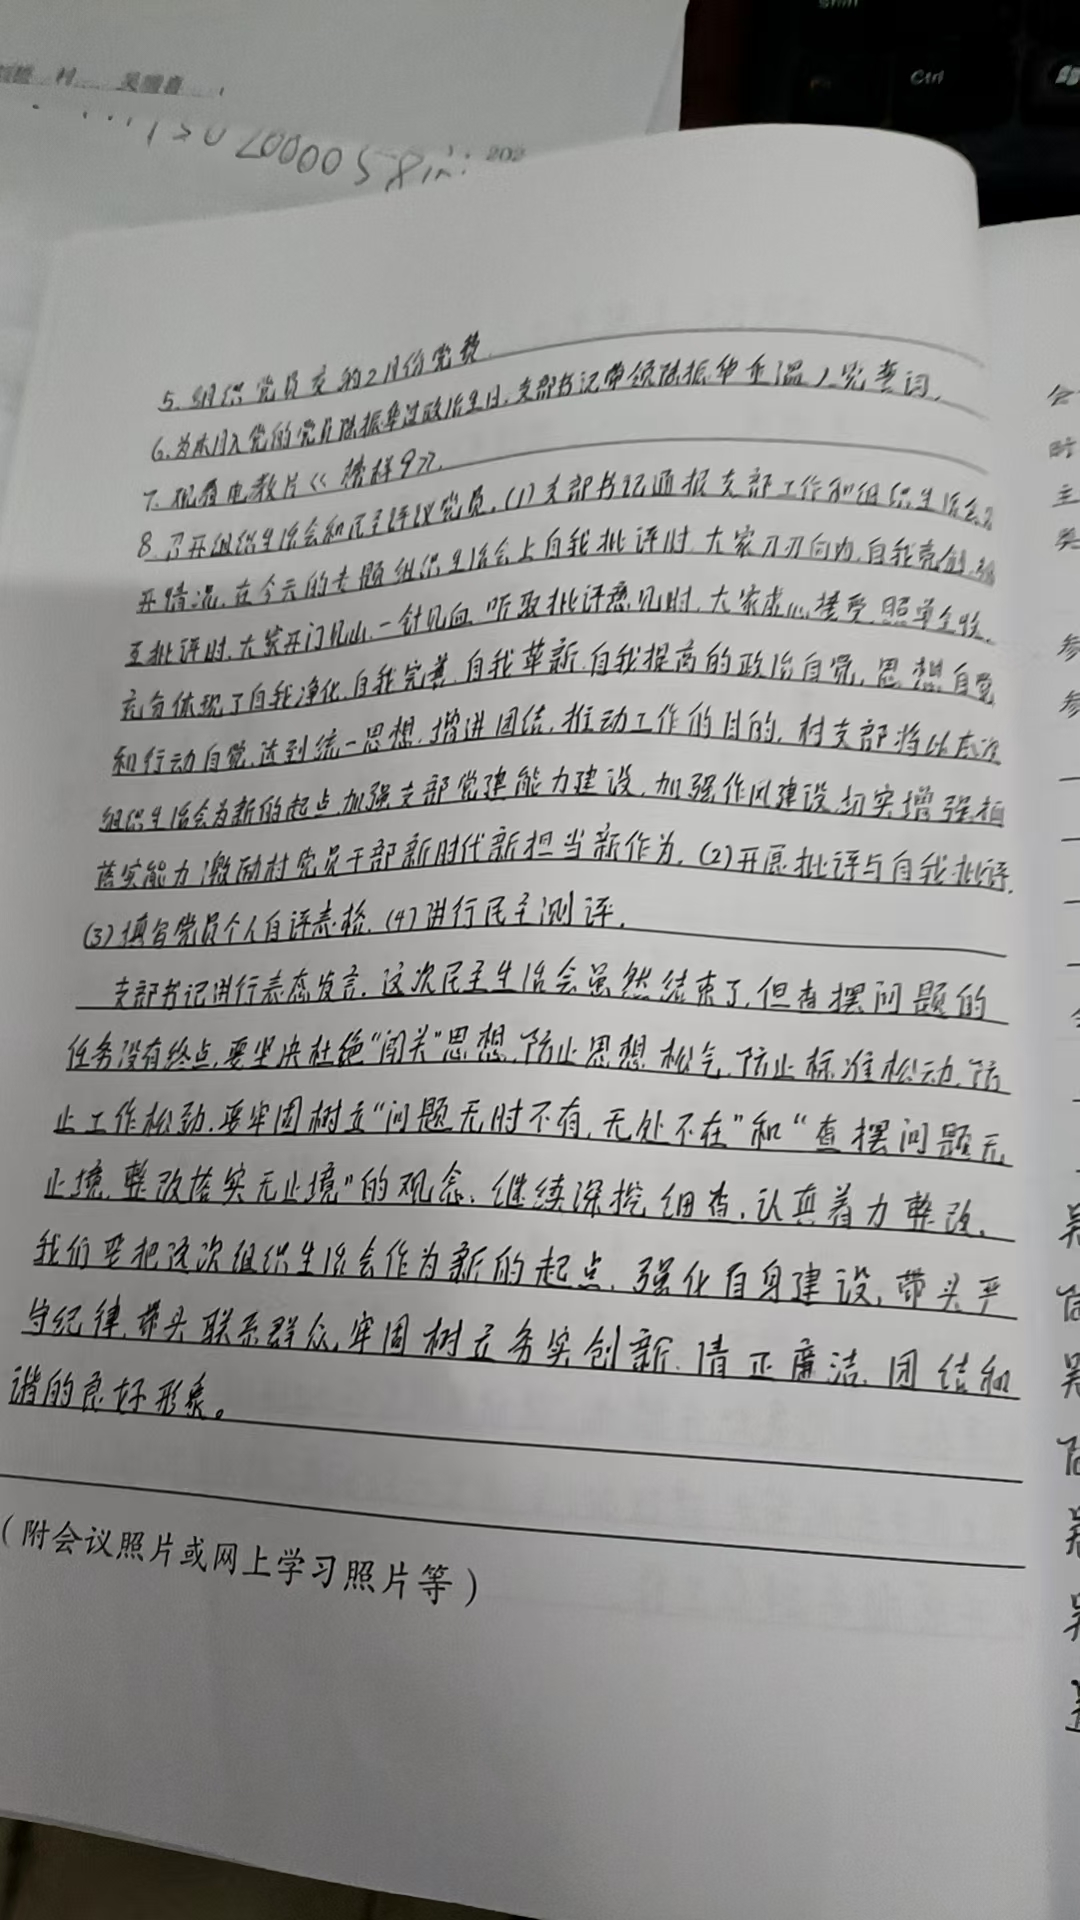 村
1502000058
202
Ctrl
5.组织党员交纳2月份党费
6.为本月入党的党员陈振华过政治生日,支部书记带领陈振华重温入党誓词.
7.观看电教片《榜样9》.
8.召开组织生活会和民主评议党员.(1)支部书记通报支部工作和组织生活会召
开情况.在今天的专题组织生活会上自我批评时.大家刀刃向内.自我亮剑.相
互批评时.大家开门见山.一针见血.听取批评意见时.大家虚心接受.照单全收.
充分体现了自我净化.自我完善.自我革新.自我提高的政治自觉,思想自觉
和行动自觉.达到统一思想.增进团结.推动工作的目的.村支部将以本次
组织生活会为新的起点.加强支部党建能力建设.加强作风建设.切实增强抓
落实能力.激励村党员干部新时代新担当新作为.(2)开展批评与自我批评.
(3)填写党员个人自评表格.(4)进行民主测评.
支部书记进行表态发言.这次民主生活会虽然结束了.但查摆问题的
任务没有终点.要坚决杜绝“闯关”思想.防止思想松气.防止标准松动.防
止工作松劲.要牢固树立“问题无时不有,无处不在”和“查摆问题无
止境.整改落实无止境”的观念.继续深挖细查.认真着力整改.
我们要把这次组织生活会作为新的起点.强化自身建设.带头严
守纪律.带头联系群众.牢固树立务实创新.清正廉洁.团结和
谐的良好形象。
(附会议照片或网上学习照片等)
会
时
主
参
参